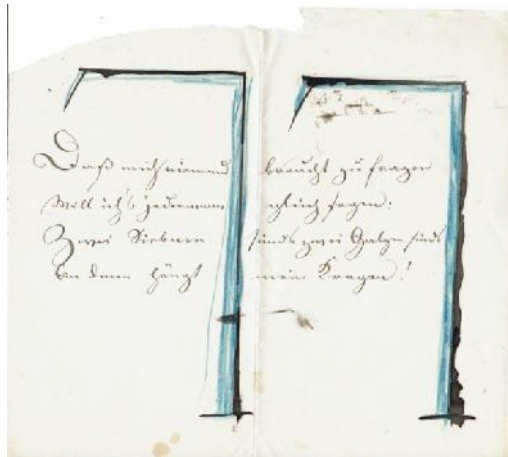 Daß mich niemand braucht zu fragen
Will ich's jedermann gleich sagen:
Zwei sinds zwei Galgen sinds
An denen hängt mein Kragen!